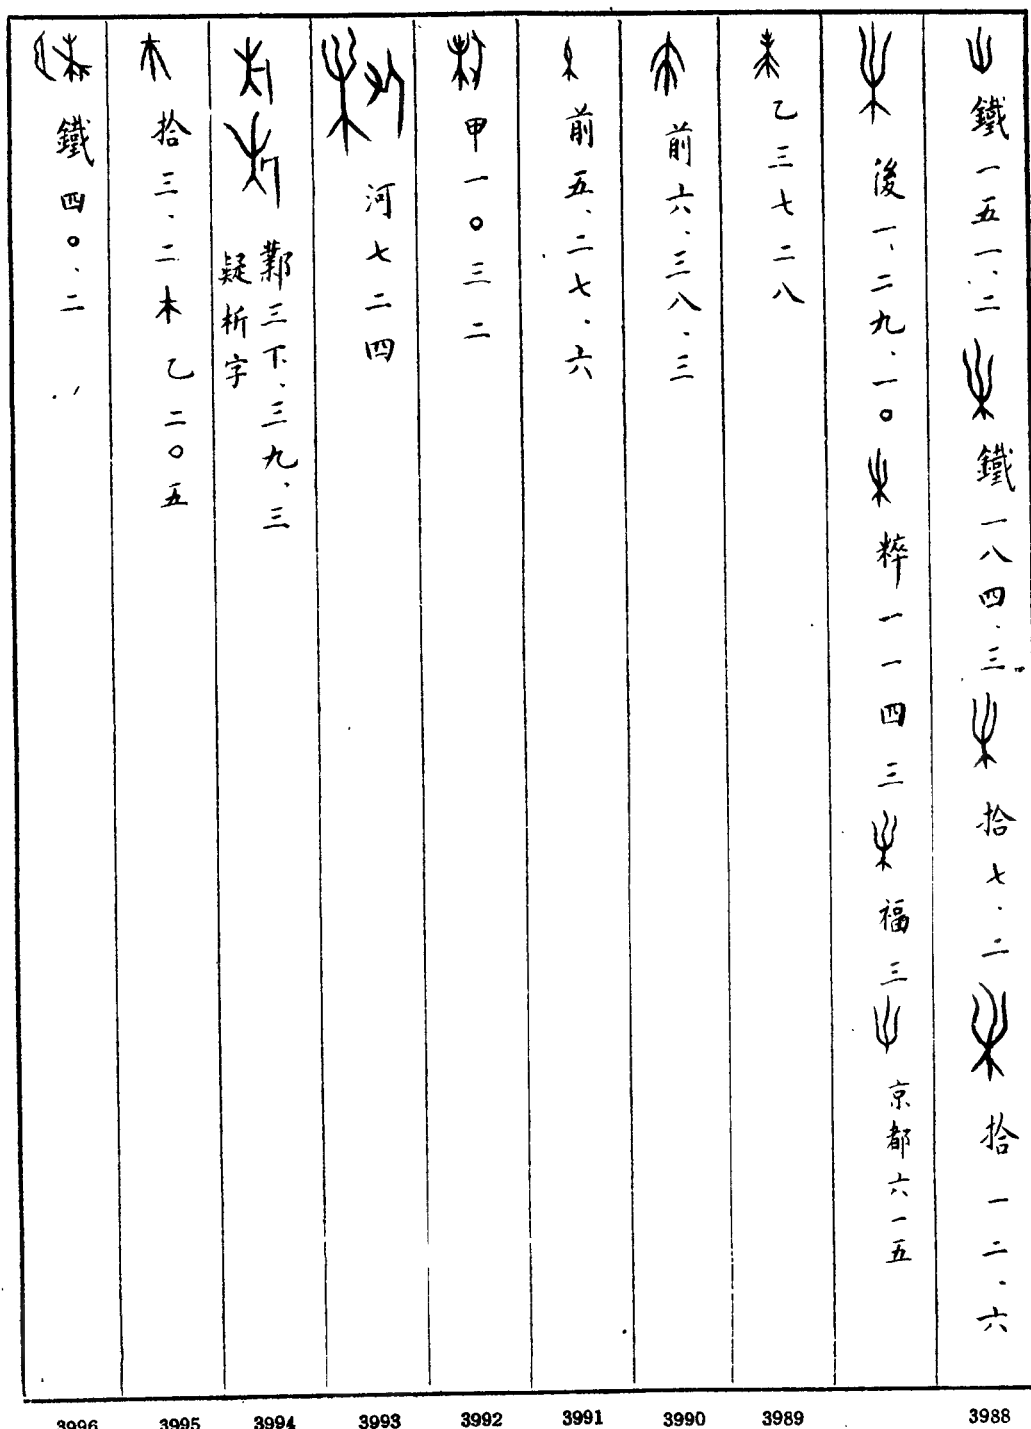 鐵一五一、二 鐵一八四、三 拾七、二 拾一二、六
後一、二九、一〇 粹一一四三 福三 京都六一五
乙三七二八
前六、三八、三
前五、二七、六
甲一〇三二
河七二四
鄴三下、三九、三
疑析字
拾三、二 乙二〇五
鐵四〇、二
3996 3995 3994 3993 3992 3991 3990 3989 3988